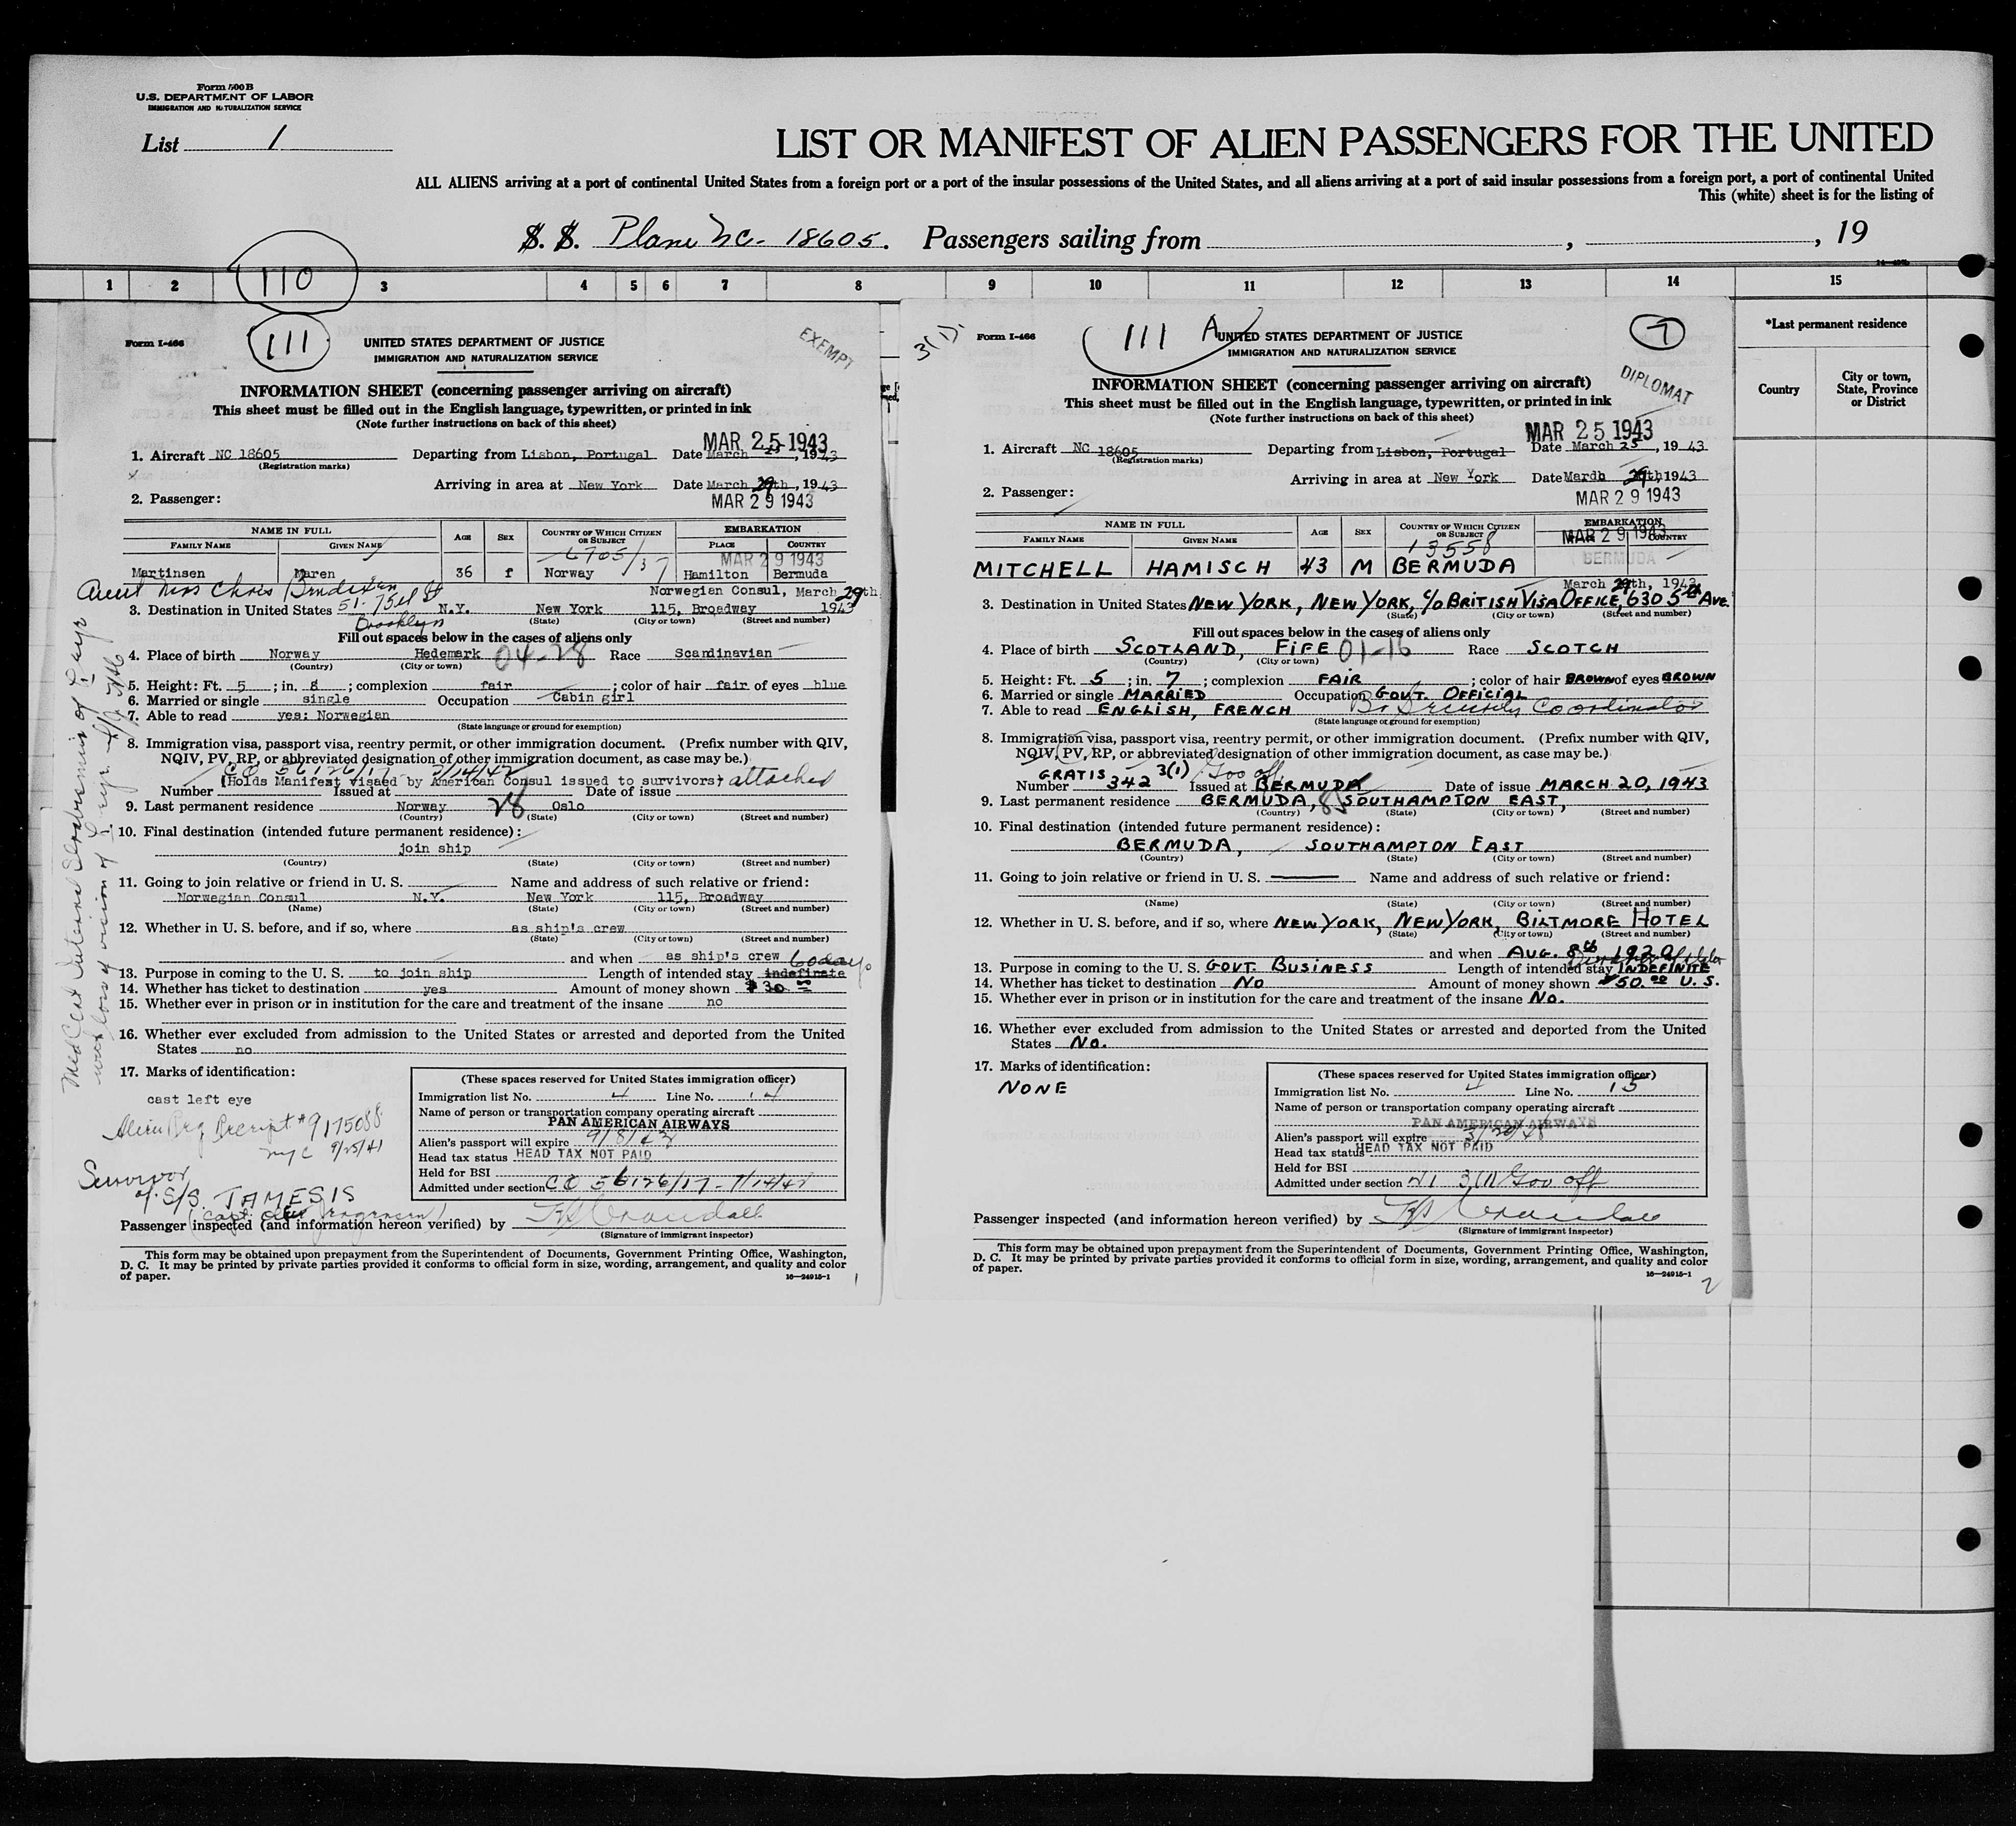 Form 500B
U.S. DEPARTMENT OF LABOR
IMMIGRATION AND NATURALIZATION SERVICE
List 1
LIST OR MANIFEST OF ALIEN PASSENGERS FOR THE UNITED
ALL ALIENS arriving at a port of continental United States from a foreign port or a port of the insular possessions of the United States, and all aliens arriving at a port of said insular possessions from a foreign port, a port of continental United
This (white) sheet is for the listing of
S. S. Plane NC- 18605. Passengers sailing from , , 19
110
1 2 3 4 5 6 7 8 9 10 11 12 13 14 15
*Last permanent residence
Country
City or town, State, Province or District
Form I-466
111
EXEMPT
UNITED STATES DEPARTMENT OF JUSTICE
IMMIGRATION AND NATURALIZATION SERVICE
INFORMATION SHEET (concerning passenger arriving on aircraft)
This sheet must be filled out in the English language, typewritten, or printed in ink
(Note further instructions on back of this sheet)
MAR 25 1943
1. Aircraft NC 18605 Departing from Lisbon, Portugal Date March 25, 1943
(Registration marks)
Arriving in area at New York Date March 29th, 1943
2. Passenger: MAR 29 1943
NAME IN FULL AGE SEX COUNTRY OF WHICH CITIZEN OR SUBJECT EMBARKATION
FAMILY NAME GIVEN NAME PLACE COUNTRY
6705/37 MAR 29 1943
Martinsen Maren 36 f Norway Hamilton Bermuda
Aunt Mrs Chris
Norwegian Consul, March 29th
3. Destination in United States 51-75th St N.Y. New York 115, Broadway 1943
Brooklyn (State) (City or town) (Street and number)
Fill out spaces below in the cases of aliens only
4. Place of birth Norway Hedemark 04-28 Race Scandinavian
(Country) (City or town)
5. Height: Ft. 5 ; in. 8 ; complexion fair ; color of hair fair of eyes blue
6. Married or single single Occupation Cabin girl
7. Able to read yes: Norwegian
(State language or ground for exemption)
8. Immigration visa, passport visa, reentry permit, or other immigration document. (Prefix number with QIV,
NQIV, PV, RP, or abbreviated designation of other immigration document, as case may be.)
CO 56126/17 7/14/42
(Holds Manifest visaed by American Consul issued to survivors) attached
Number Issued at Date of issue
9. Last permanent residence Norway 28 Oslo
(Country) (State) (City or town) (Street and number)
10. Final destination (intended future permanent residence):
join ship
(Country) (State) (City or town) (Street and number)
11. Going to join relative or friend in U. S. Name and address of such relative or friend:
Norwegian Consul N.Y. New York 115, Broadway
(Name) (State) (City or town) (Street and number)
12. Whether in U. S. before, and if so, where as ship's crew
(State) (City or town) (Street and number)
and when as ship's crew 60 days
13. Purpose in coming to the U. S. to join ship Length of intended stay indefinate
14. Whether has ticket to destination yes Amount of money shown $ 30
15. Whether ever in prison or in institution for the care and treatment of the insane no
16. Whether ever excluded from admission to the United States or arrested and deported from the United
States no
17. Marks of identification:
cast left eye
Alien Reg Receipt # 9175088
NYC 9/25/41
Survivor
of S/S. TAMESIS
(These spaces reserved for United States immigration officer)
Immigration list No. 4 Line No. 14
Name of person or transportation company operating aircraft
PAN AMERICAN AIRWAYS
Alien's passport will expire 9/8/43
Head tax status HEAD TAX NOT PAID
Held for BSI
Admitted under section CO 56126/17 - 7/14/42
Passenger inspected (and information hereon verified) by
(Signature of immigrant inspector)
This form may be obtained upon prepayment from the Superintendent of Documents, Government Printing Office, Washington,
D. C. It may be printed by private parties provided it conforms to official form in size, wording, arrangement, and quality and color
of paper. 16—24915-1 1
3(1)
Form I-466
111 A
7
DIPLOMAT
UNITED STATES DEPARTMENT OF JUSTICE
IMMIGRATION AND NATURALIZATION SERVICE
INFORMATION SHEET (concerning passenger arriving on aircraft)
This sheet must be filled out in the English language, typewritten, or printed in ink
(Note further instructions on back of this sheet)
MAR 25 1943
1. Aircraft NC 18605 Departing from Lisbon, Portugal Date March 25, 1943
(Registration marks)
Arriving in area at New York Date March 29th, 1943
2. Passenger: MAR 29 1943
NAME IN FULL AGE SEX COUNTRY OF WHICH CITIZEN OR SUBJECT EMBARKATION
FAMILY NAME GIVEN NAME COUNTRY
13558 MAR 29 1943
BERMUDA
MITCHELL HAMISCH 43 M BERMUDA
March 29th, 1943
3. Destination in United States NEW YORK, NEW YORK, C/O BRITISH VISA OFFICE, 630 5th AVE.
(State) (City or town) (Street and number)
Fill out spaces below in the cases of aliens only
4. Place of birth SCOTLAND, FIFE 01-16 Race SCOTCH
(Country) (City or town)
5. Height: Ft. 5 ; in. 7 ; complexion FAIR ; color of hair BROWN of eyes BROWN
6. Married or single MARRIED Occupation GOVT. OFFICIAL
7. Able to read ENGLISH, FRENCH Br Security Coordinator
(State language or ground for exemption)
8. Immigration visa, passport visa, reentry permit, or other immigration document. (Prefix number with QIV,
NQIV, PV, RP, or abbreviated designation of other immigration document, as case may be.)
GRATIS 3(1) Gov off
Number 342 Issued at BERMUDA Date of issue MARCH 20, 1943
9. Last permanent residence BERMUDA, SOUTHAMPTON EAST,
(Country) (State) (City or town) (Street and number)
10. Final destination (intended future permanent residence):
BERMUDA, SOUTHAMPTON EAST
(Country) (State) (City or town) (Street and number)
11. Going to join relative or friend in U. S. Name and address of such relative or friend:
(Name) (State) (City or town) (Street and number)
12. Whether in U. S. before, and if so, where NEW YORK, NEW YORK, BILTMORE HOTEL
(State) (City or town) (Street and number)
and when AUG. 8th, 1920
13. Purpose in coming to the U. S. GOVT. BUSINESS Length of intended stay INDEFINITE
14. Whether has ticket to destination NO Amount of money shown $50.00 U. S.
15. Whether ever in prison or in institution for the care and treatment of the insane NO.
16. Whether ever excluded from admission to the United States or arrested and deported from the United
States NO.
17. Marks of identification:
NONE
(These spaces reserved for United States immigration officer)
Immigration list No. 4 Line No. 15
Name of person or transportation company operating aircraft
PAN AMERICAN AIRWAYS
Alien's passport will expire 3/20/48
Head tax status HEAD TAX NOT PAID
Held for BSI
Admitted under section 3(1) Gov off
Passenger inspected (and information hereon verified) by
(Signature of immigrant inspector)
This form may be obtained upon prepayment from the Superintendent of Documents, Government Printing Office, Washington,
D. C. It may be printed by private parties provided it conforms to official form in size, wording, arrangement, and quality and color
of paper. 16—24915-1 2